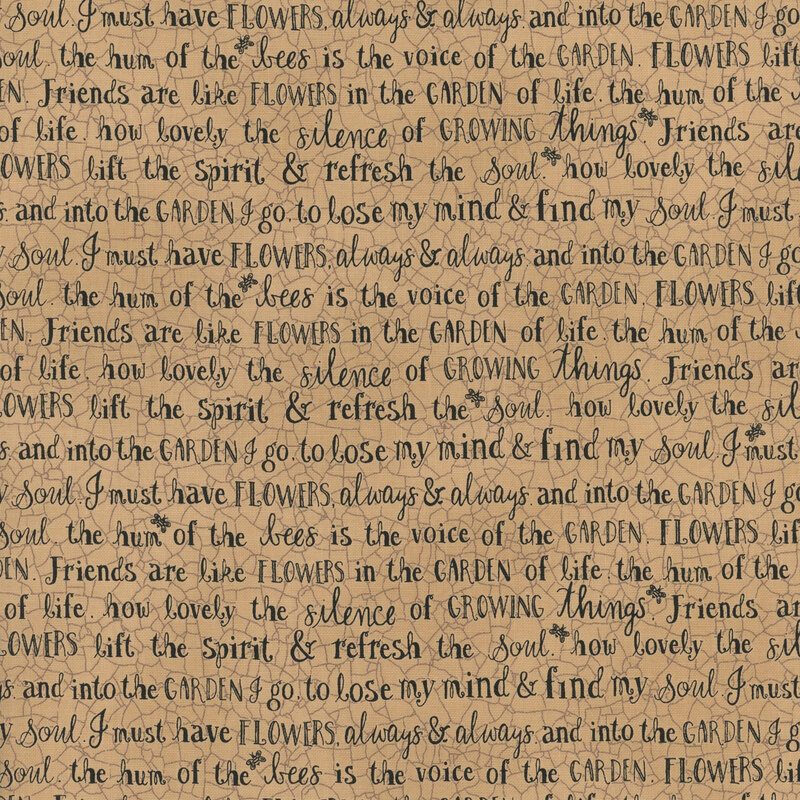 Soul. I must have FLOWERS, always & always. and into the GARDEN I go
Soul. the hum of the bees is the voice of the GARDEN. FLOWERS lift
EN. Friends are like FLOWERS in the GARDEN of life. the hum of the
of life. how lovely the silence of GROWING things. Friends are
OWERS lift the spirit & refresh the Soul. how lovely the sil
s. and into the GARDEN I go. to lose my mind & find my Soul. I must
y Soul. I must have FLOWERS, always & always. and into the GARDEN I go
Soul. the hum of the bees is the voice of the GARDEN. FLOWERS lift
EN. Friends are like FLOWERS in the GARDEN of life. the hum of the
of life. how lovely the silence of GROWING things. Friends ar
LOWERS lift the spirit & refresh the Soul. how lovely the sil
s. and into the GARDEN I go. to lose my mind & find my Soul. I must
y Soul. I must have FLOWERS, always & always. and into the GARDEN I g
Soul. the hum of the bees is the voice of the GARDEN. FLOWERS lif
DEN. Friends are like FLOWERS in the GARDEN of life. the hum of the
of life. how lovely the silence of GROWING things. Friends ar
LOWERS lift the spirit & refresh the Soul. how lovely the sil
ys. and into the GARDEN I go. to lose my mind & find my Soul. I must
y Soul. I must have FLOWERS, always & always. and into the GARDEN I g
Soul. the hum of the bees is the voice of the GARDEN. FLOWERS lif